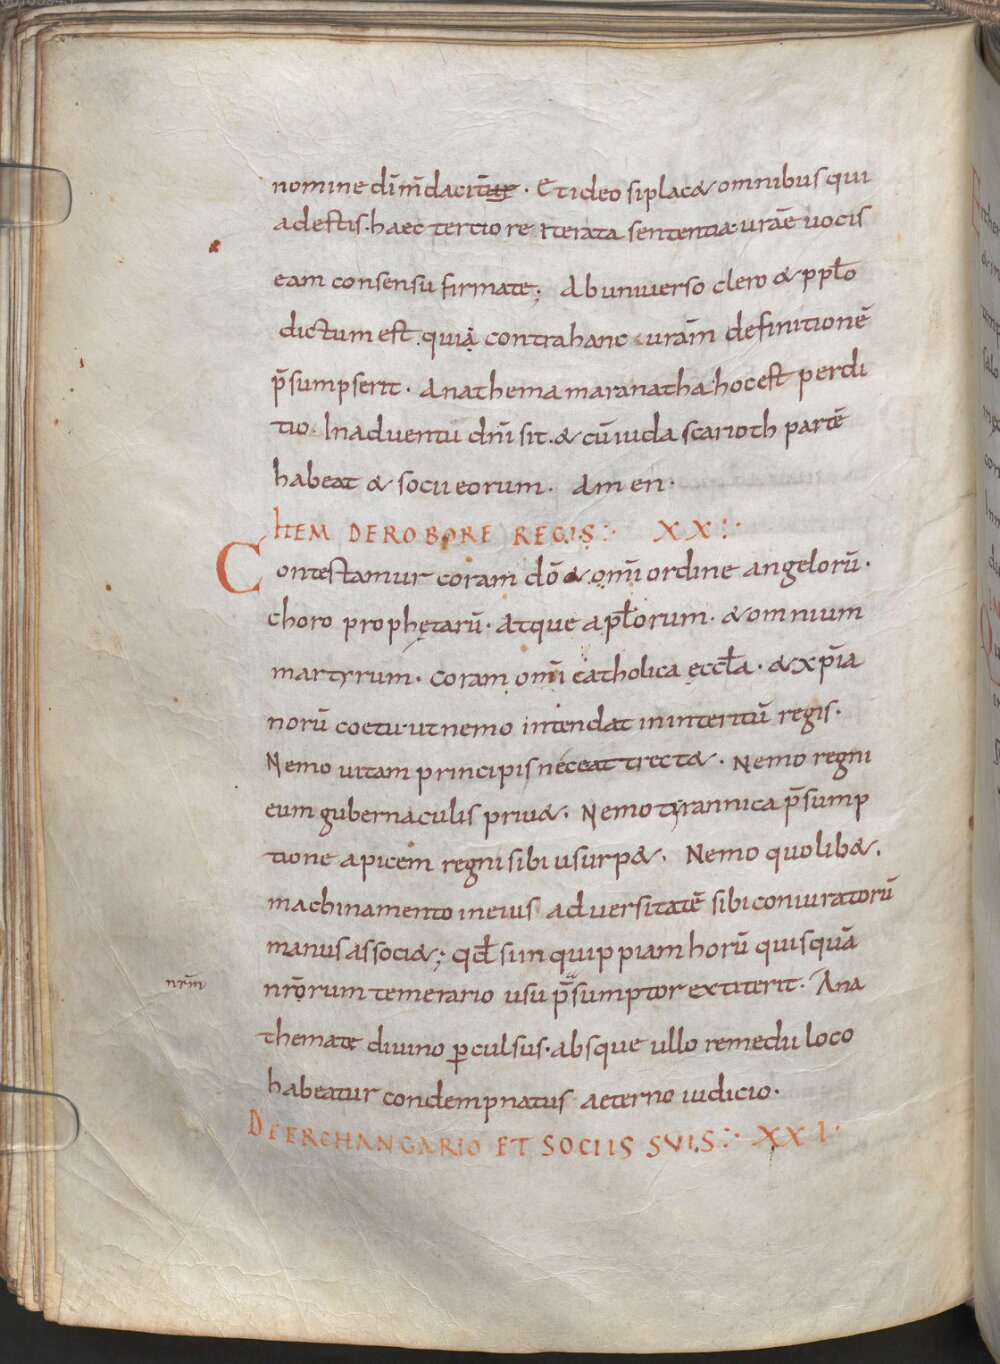 nomine dī m̄ dacit̄ur · Et ideo si plac& omnibus qui
adestis · haec tertio reiterata sententia · uraē uocis
eam consensu firmate; Ab uniuerso clero & ppło
dictum est · quia contra hanc uram̄ definitionē
p̄sumpserit · Anathema maranatha · hoc est perdi
tio · In aduentu dn̄i sit · & cū iuda scarioth partē
habeat & socii eorum · Amen ·
ITEM DE ROBORE REGIS ∴ XX ∴
Contestamur coram dō & om̄i ordine angelorū ·
choro prophętarū · Atque apłorum · & omnium
martyrum · coram om̄i catholica ęccła · & xp̄ia
norū coetu · ut nemo intendat in interitū regis ·
Nemo uitam principis nece attrect& · Nemo regni
eum gubernaculis priu& · Nemo tyrannica p̄sump
tione apicem regni sibi usurp& · Nemo quolib& ·
machinamento in eius aduersitatē sibi coniuratorū
manus associ&; qđ si in quippiam horū quisquā
nrm̄
nrōrum temerario usu p̄sumptor extiterit · Ana
themate diuino p̲culsus · absque ullo remedii loco
habeatur condempnatus aeterno iudicio ·
DE ERCHANGARIO ET SOCIIS SVIS ∴ XXI ·